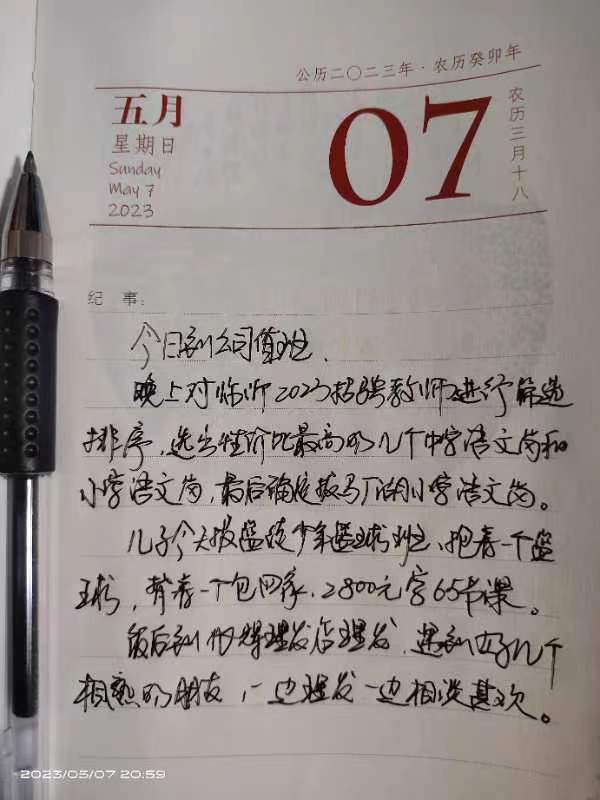 公历二〇二三年·农历癸卯年
五月
星期日
Sunday
May 7
2023
07
农历三月十八
纪 事：
今日到公司值班。
晚上对临沂2023招聘教师进行筛选
排序，选出性价比最高的几个中学语文岗和
小学语文岗，最后确定报马厂湖小学语文岗。
儿子今天报篮途少年篮球班、抱着一个篮
球，背着一个包回家，2800元字65节课。
饭后到理发店理发，遇到好几个
相熟的朋友，一边理发一边相谈甚欢。
2023/05/07 20:59